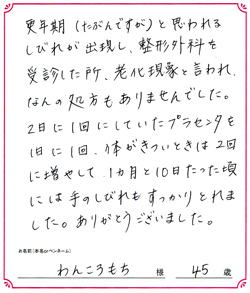 更年期（たぶんですが）と思われる
しびれが出現し、整形外科を
受診した所、老化現象と言われ、
なんの処方もありませんでした。
2日に1回にしていたプラセンタを
1日に1回、体がきついときは2回
に増やして、1カ月と10日たった頃
には手のしびれもすっかりとれま
した。ありがとうございました。
お名前（本名orペンネーム）
わんころもち 様 45 歳